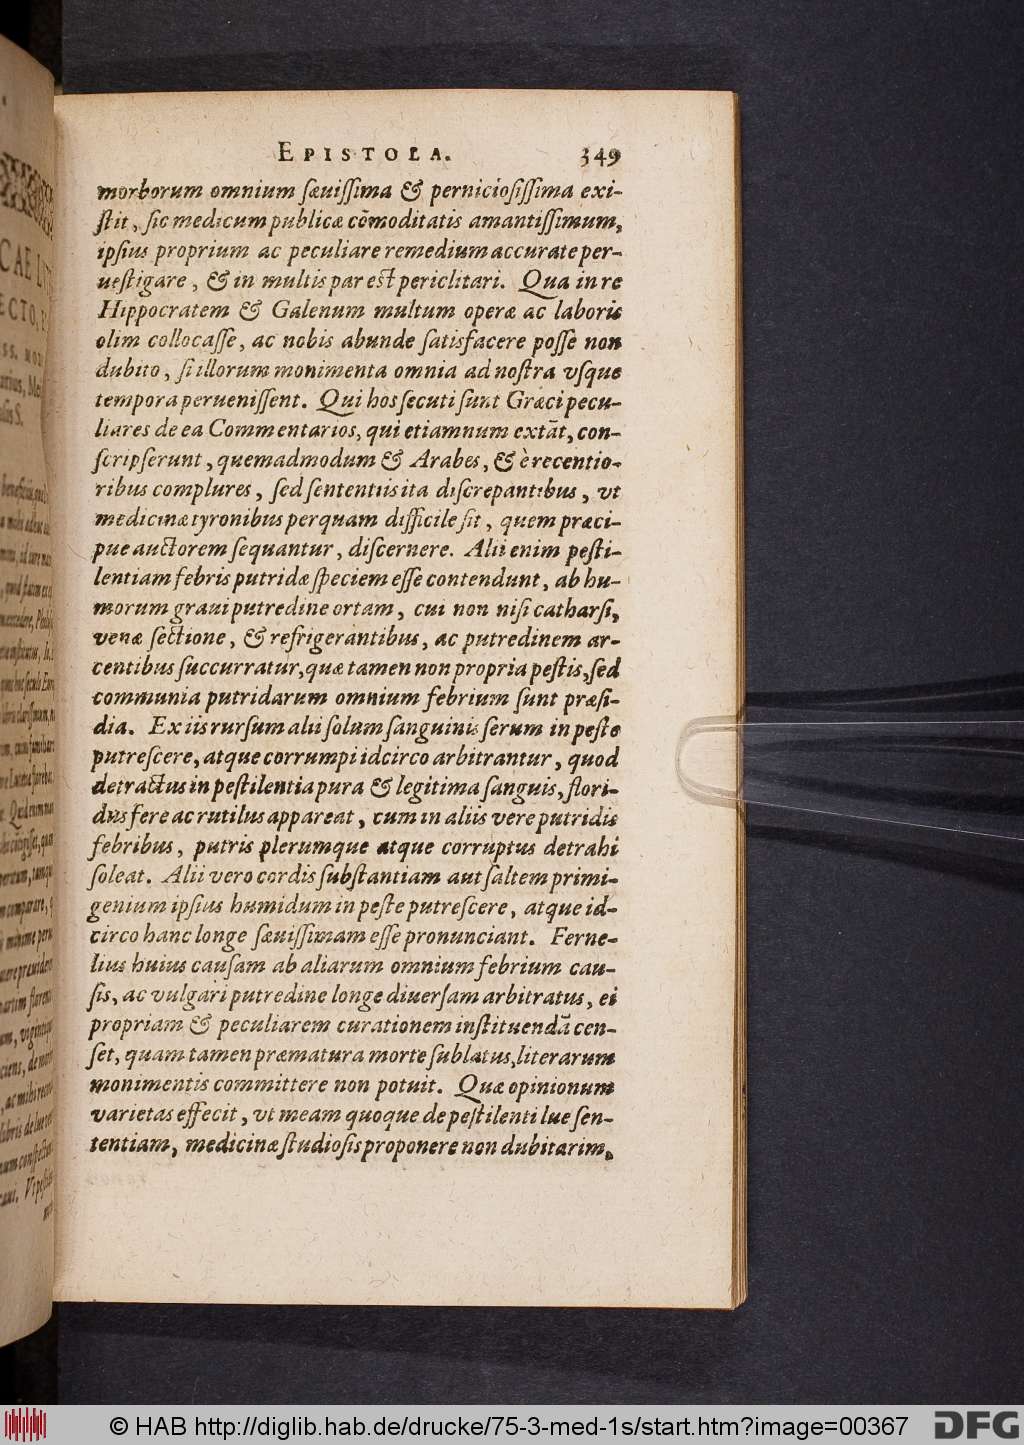 EPISTOLA. 349
morborum omnium sæuissima & perniciosissima exi-
stit, sic medicum publicæ cōmoditatis amantissimum,
ipsius proprium ac peculiare remedium accurate per-
uestigare, & in multis par est periclitari. Qua in re
Hippocratem & Galenum multum operæ ac laboris
olim collocasse, ac nobis abunde satisfacere posse non
dubito, si illorum monimenta omnia ad nostra vsque
tempora peruenissent. Qui hos secuti sunt Græci pecu-
liares de ea Commentarios, qui etiamnum extāt, con-
scripserunt, quemadmodum & Arabes, & è recentio-
ribus complures, sed sententiis ita discrepantibus, vt
medicinæ tyronibus perquam difficile sit, quem præci-
pue auctorem sequantur, discernere. Alii enim pesti-
lentiam febris putridæ speciem esse contendunt, ab hu-
morum graui putredine ortam, cui non nisi catharsi,
venæ sectione, & refrigerantibus, ac putredinem ar-
centibus succurratur, quæ tamen non propria pestis, sed
communia putridarum omnium febrium sunt præsi-
dia. Ex iis rursum alii solum sanguinis serum in peste
putrescere, atque corrumpi idcirco arbitrantur, quod
detractus in pestilentia pura & legitima sanguis, flori-
dus fere ac rutilus appareat, cum in aliis vere putridis
febribus, putris plerumque atque corruptus detrahi
soleat. Alii vero cordis substantiam aut saltem primi-
genium ipsius humidum in peste putrescere, atque id-
circo hanc longe sæuissimam esse pronunciant. Ferne-
lius huius causam ab aliarum omnium febrium cau-
sis, ac vulgari putredine longe diuersam arbitratus, ei
propriam & peculiarem curationem instituendā cen-
set, quam tamen præmatura morte sublatus, literarum
monimentis committere non potuit. Quæ opinionum
varietas effecit, vt meam quoque de pestilenti lue sen-
tentiam, medicinæ studiosis proponere non dubitarim,
© HAB http://diglib.hab.de/drucke/75-3-med-1s/start.htm?image=00367
DFG